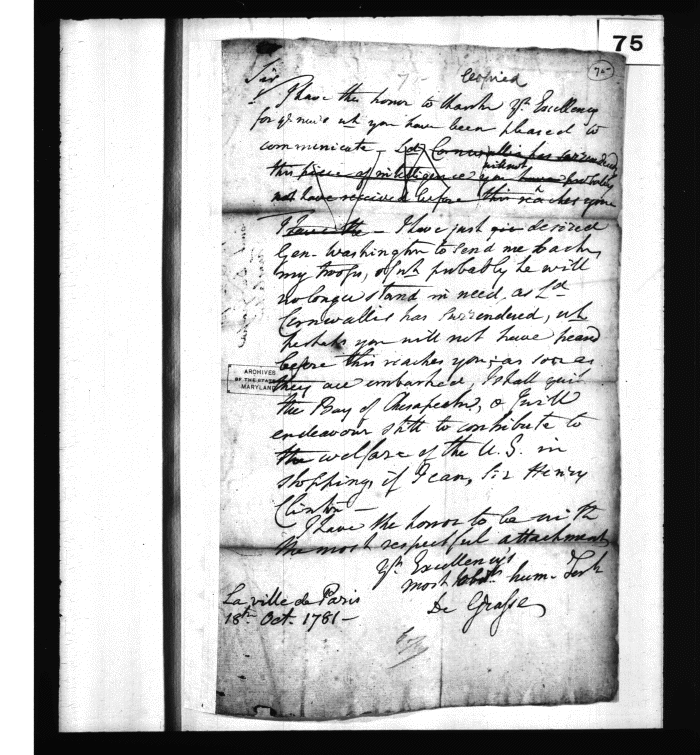 75
75
Copied
Sir
I have the honor to thank Yr. Excellency
for ye. news wh. you have been pleased to
communicate - Ld. Cornwallis has surrendered
this piece of intelligence you will not have probably
not have received before this reaches you
I have the - I have just given desired
Gen. Washington to send me back
my troops, of wh. probably he will
no longer stand in need, as Ld.
Cornwallis has surrendered, wh.
perhaps you will not have heard
before this reaches you; as soon as
they are embarked, I shall quit
the Bay of Chesapeake, & I will
endeavour still to contribute to
the welfare of the U.S. in
stopping, if I can, Sir Henry
Clinton -
I have the honor to be with
the most respectful attachment
Yr. Excellency's
most obdt. hum. Servt.
De Grasse
La ville de Paris
18th. Oct. 1781 -
ARCHIVES
OF THE STATE OF
MARYLAND